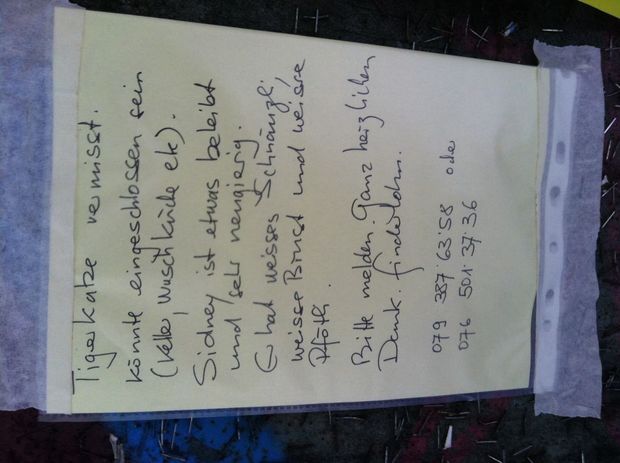 Tigerkatze vermisst.
Könnte eingeschlossen sein
(Keller, Waschküche etc).
Sidney ist etwas beleibt
und sehr neugierig.
Er hat weisses Schnäuzli,
weisse Brust und weisse
Pfötli.
Bitte melden. Ganz herzlichen
Dank. Finderlohn.
079 387 63 58 oder
076 501 37 36